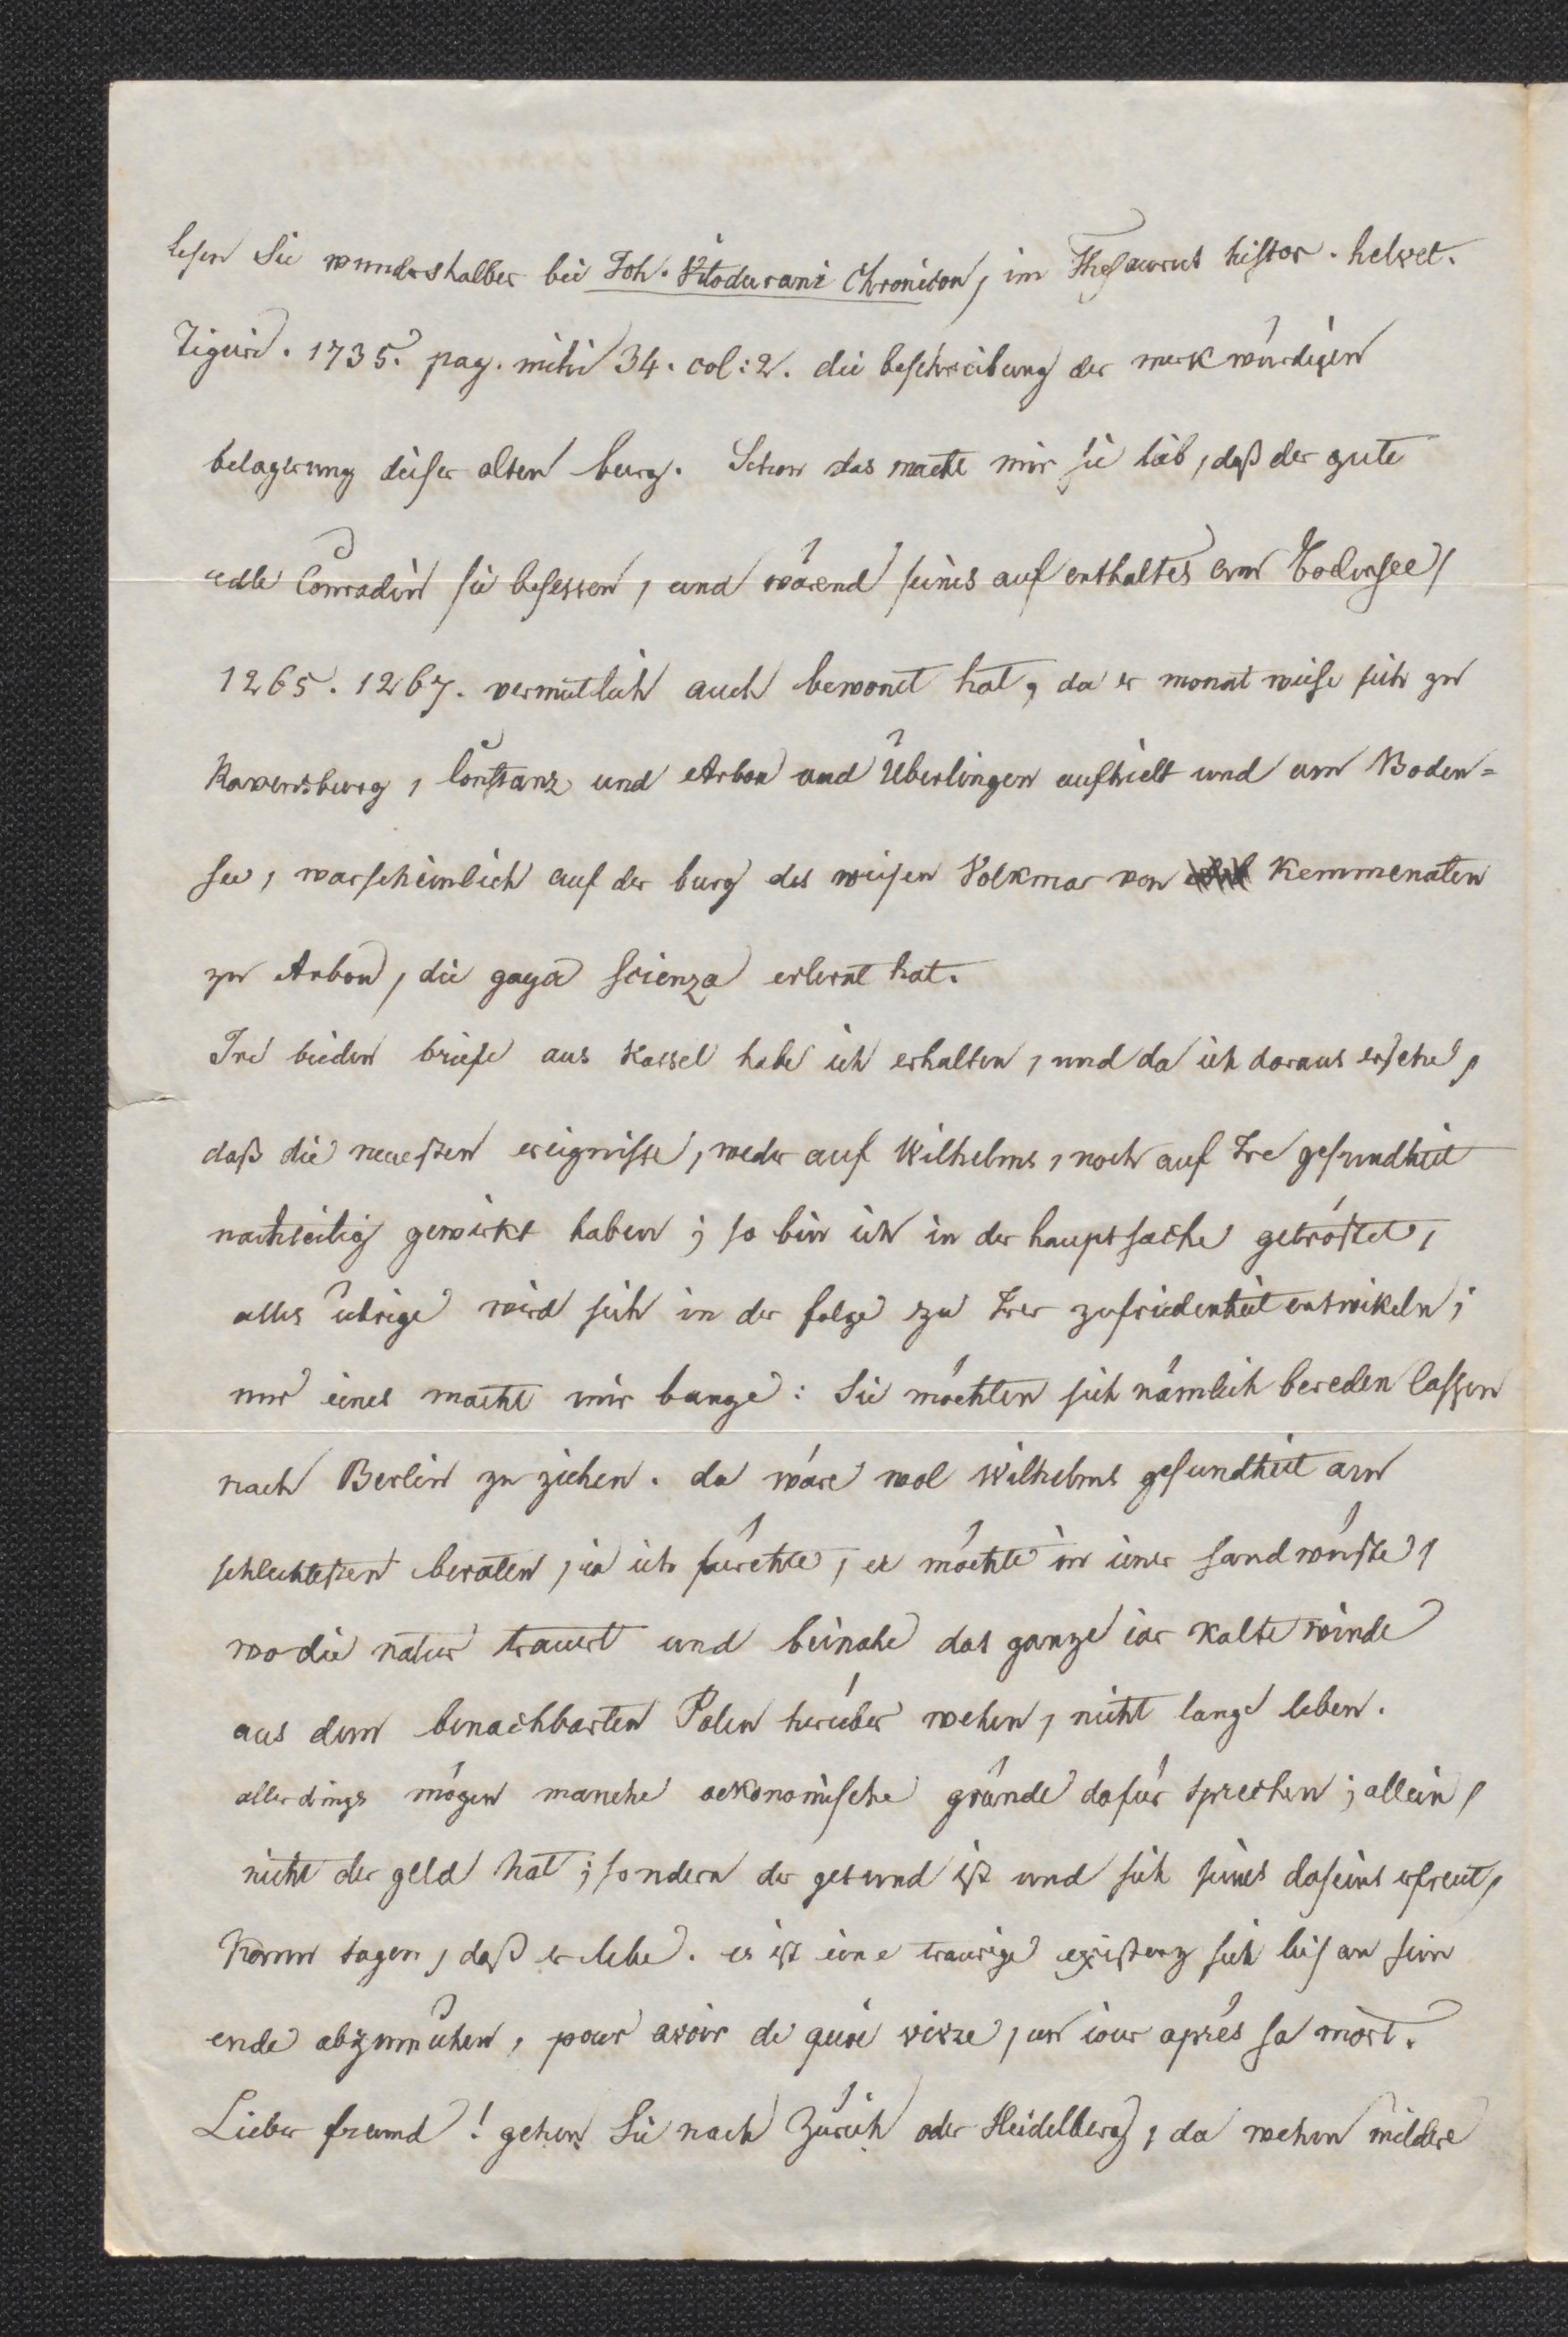 lesen Sie wundershalber bei Joh. Vitodurani Chronicon, im Thesaurus histor. helvet.
Tiguri. 1735. pag. mihi 34. col: 2. die beschreibung der merkwürdigen
belagerung dieser alten burg. Schon das macht mir sie lieb, daß der gute
edle Conradin sie besessen, und wärend seines aufenthaltes am Bodensee,
1265. 1267. vermutlich auch bewont hat, da er monat weise sich zu
Ravensburg, Constanz und Arbon und Überlingen aufhielt und am Boden=
see, warscheinlich auf der burg des weisen Volkmar von Kemmenaten
zu Arbon, die gaya scienza erlernt hat.
Ire beiden briefe aus Kassel habe ich erhalten, und da ich daraus ersehe,
daß die neuesten ereignisse, weder auf Wilhelms, noch auf Ire gesundheit
nachteilig gewirkt haben; so bin ich in der hauptsache getröstet,
alles übrige wird sich in der folge zu Irer zufriedenheit entwikeln;
nur eines macht mir bange: Sie möchten sich nämlich bereden lassen
nach Berlin zu ziehen. da wäre wol Wilhelms gesundheit am
schlechtesten beraten, ia ich fürchte, er möchte in iener sandwüste,
wo die natur trauert und beinahe das ganze iar kalte winde
aus dem benachbarten Polen herüber wehen, nicht lange leben.
allerdings mögen manche oekonomische gründe dafür sprechen; allein,
nicht der geld hat; sondern der gesund ist und sich seines daseins erfreut,
kann sagen, daß er lebe. es ist eine traurige existenz sich bis an sein
ende abzumühen, pour avoir de quoi vivre, un iour aprés sa mort.
Lieber freund! gehen Sie nach Zürich oder Heidelberg, da wehen mildere